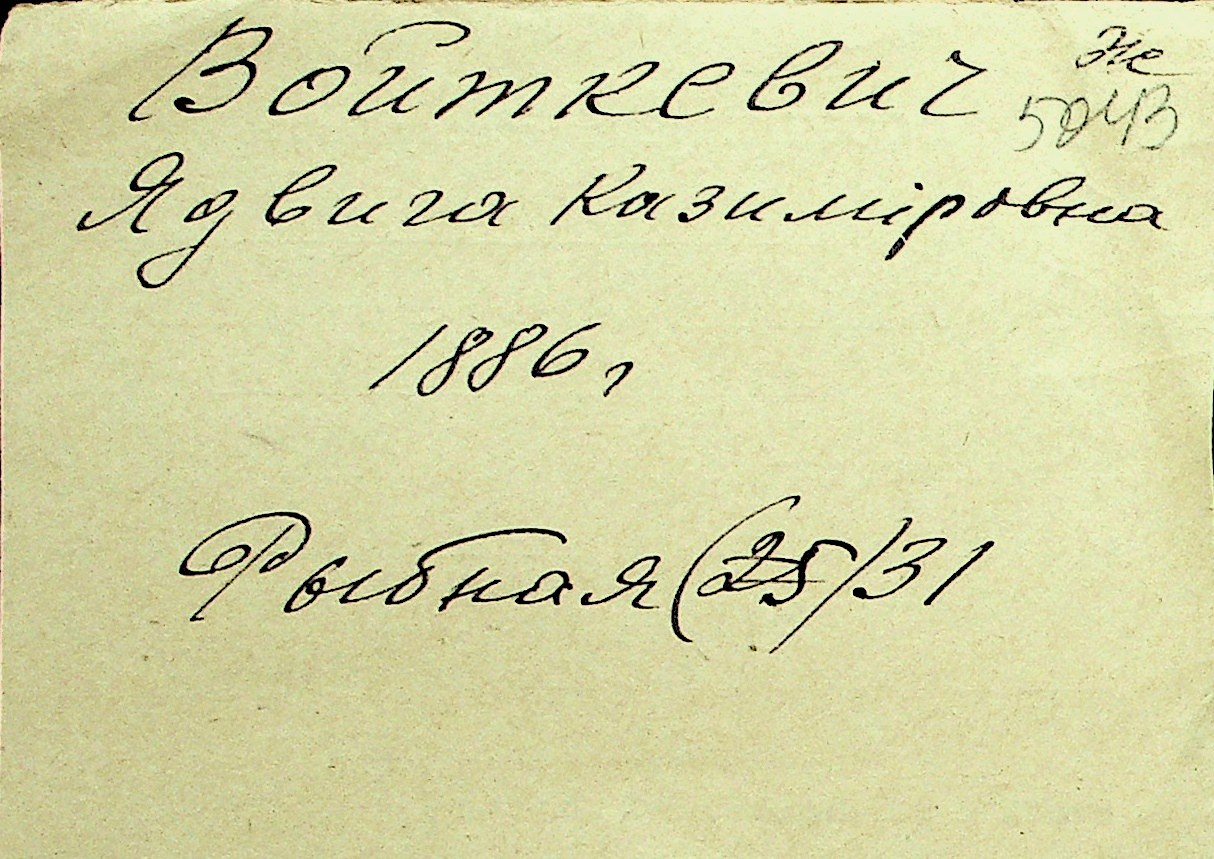 Войткевич
Ядвига Казиміровна
1886 г
Рыбная (25)/31